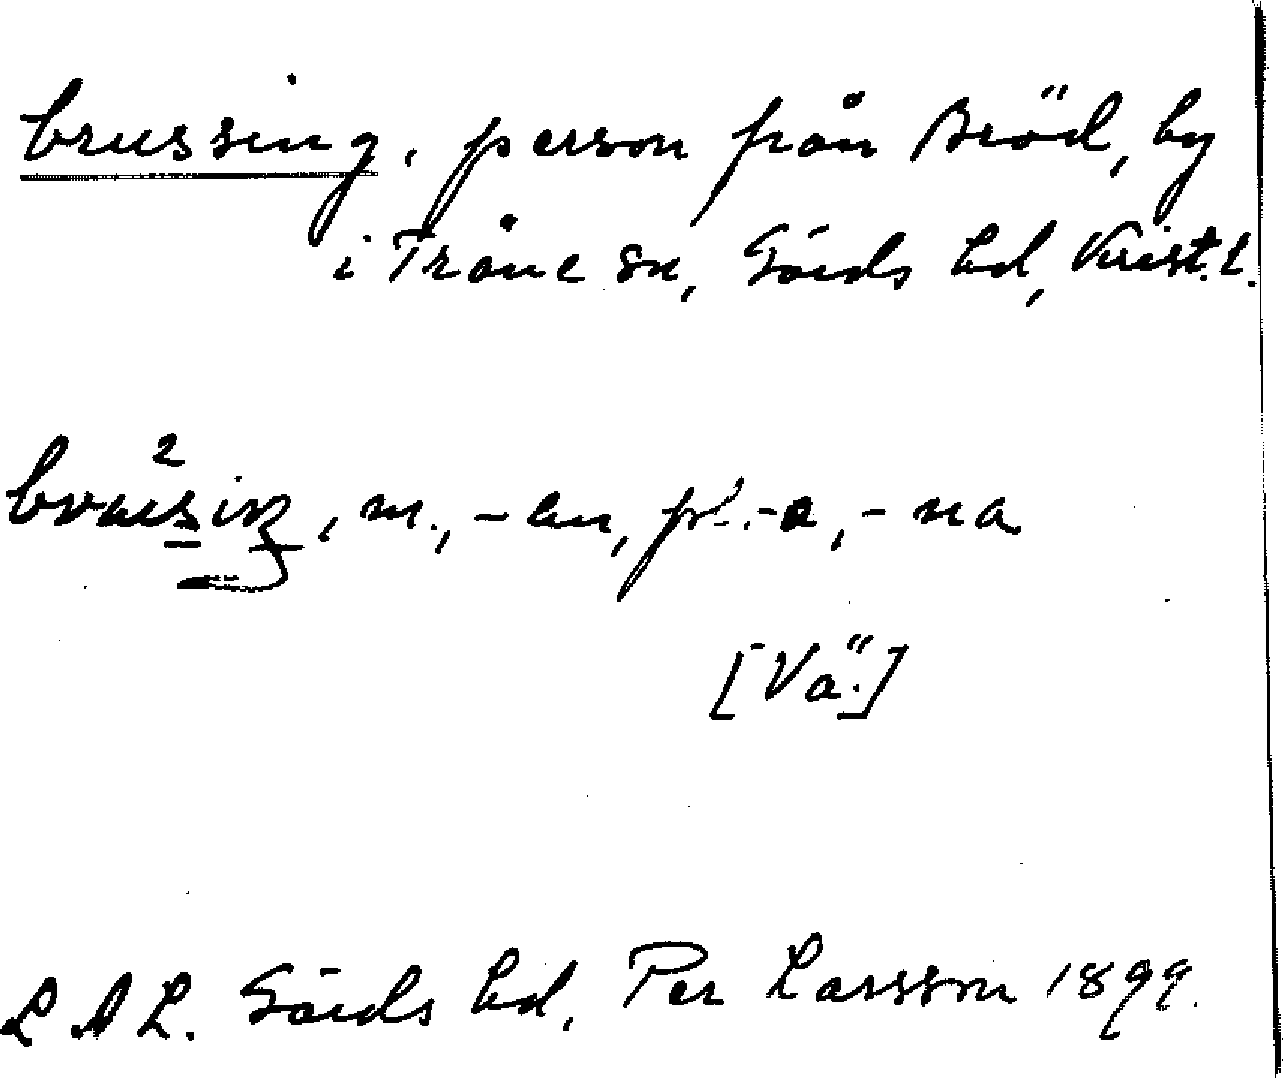 brussing, person från Bröd, by
i Träne sn, Gärds hd, Krist. l.
m., -en, pl. -a, -na
[Vä.]
L A L. Gärds hd, Per Larsson 1899.